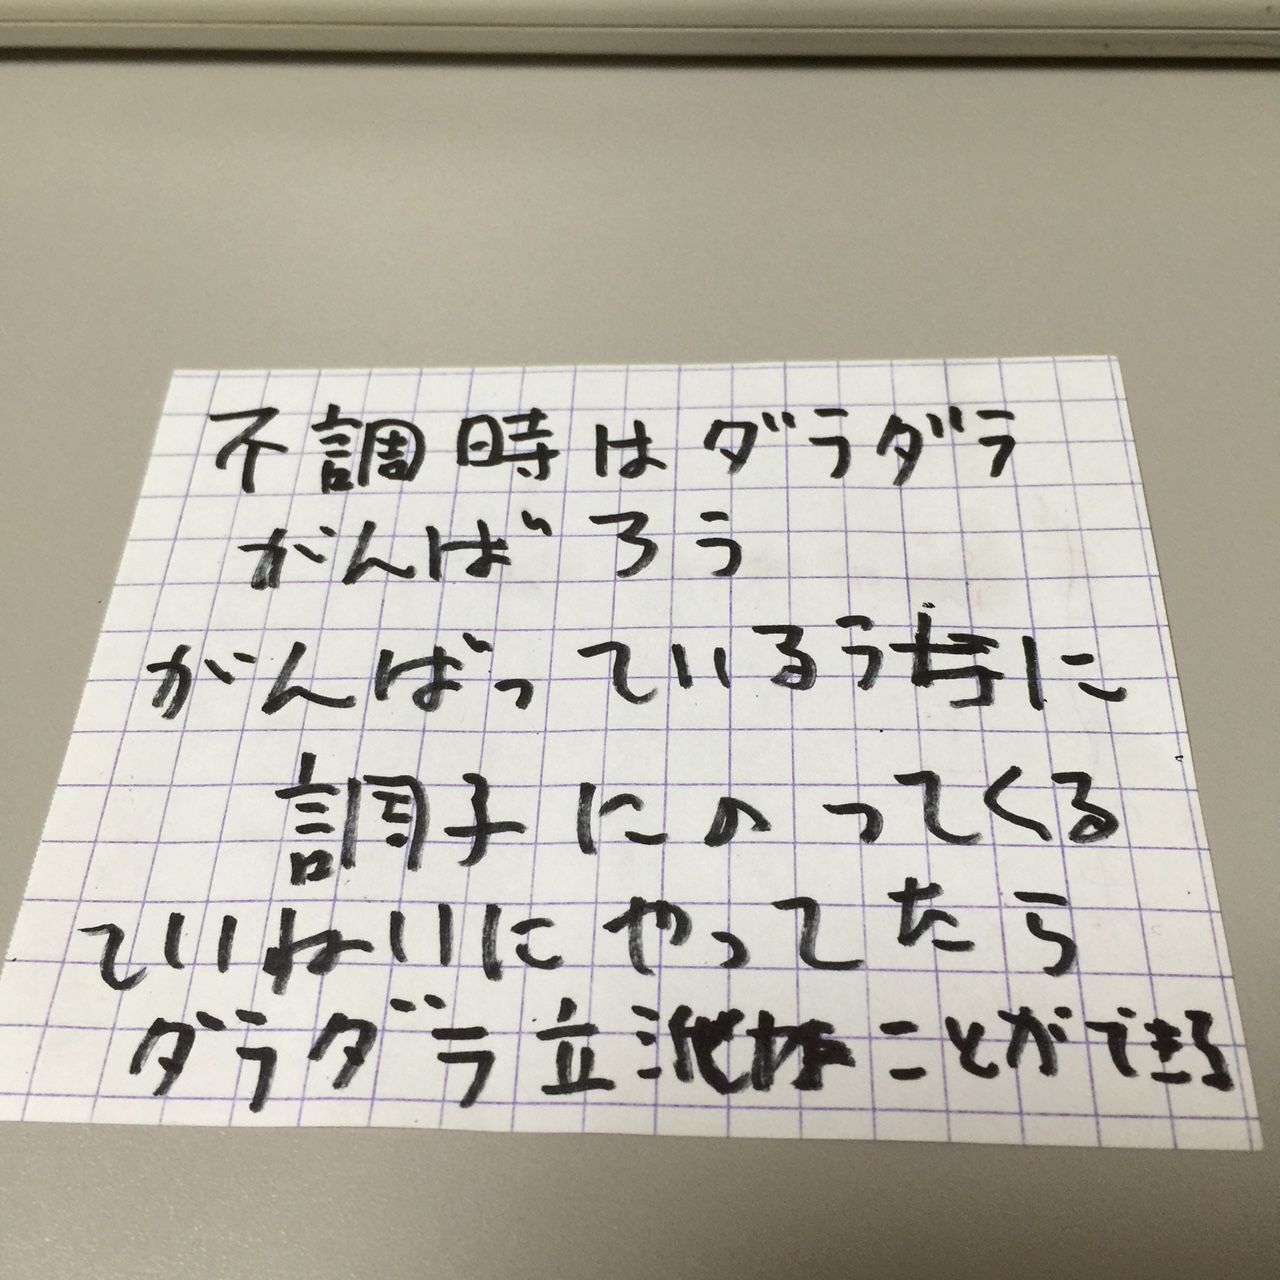 不調時はダラダラ
がんばろう
がんばっているうちに
調子にのってくる
ていねいにやってたら
ダラダラ立派なことができる